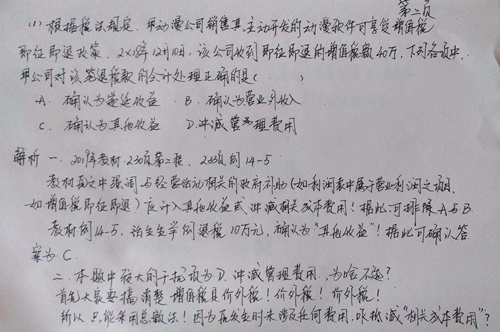 第二页
(1) 根据税法规定,甲动漫公司销售其主动开发的动漫软件可享受增值税
即征即退政策,2×18年12月10日,该公司收到即征即退的增值税税额40万,下列各项中,
甲公司对该笔退税款的会计处理正确的是( )
A. 确认为递延收益 B. 确认为营业外收入
C. 确认为其他收益 D. 冲减管理费用
解析 一. 2019年教材230页第二段,233页例14-5
教材原文中强调与经营活动相关的政府补助(如利润表中属于营业利润之项目,
如增值税即征即退)应计入其他收益或冲减相关成本费用!据此可排除A与B
教材例14-5,活生生举例退税10万元,确认为“其他收益”!据此可确认答
案为C.
二. 本题中较大的干扰项为D. 冲减管理费用,为啥不选?
首先大家要搞清楚 增值税是价外税!价外税!价外税!
所以只能采用总额法!因为在发生时未涉及任何费用,咋抵减“相关成本费用”?